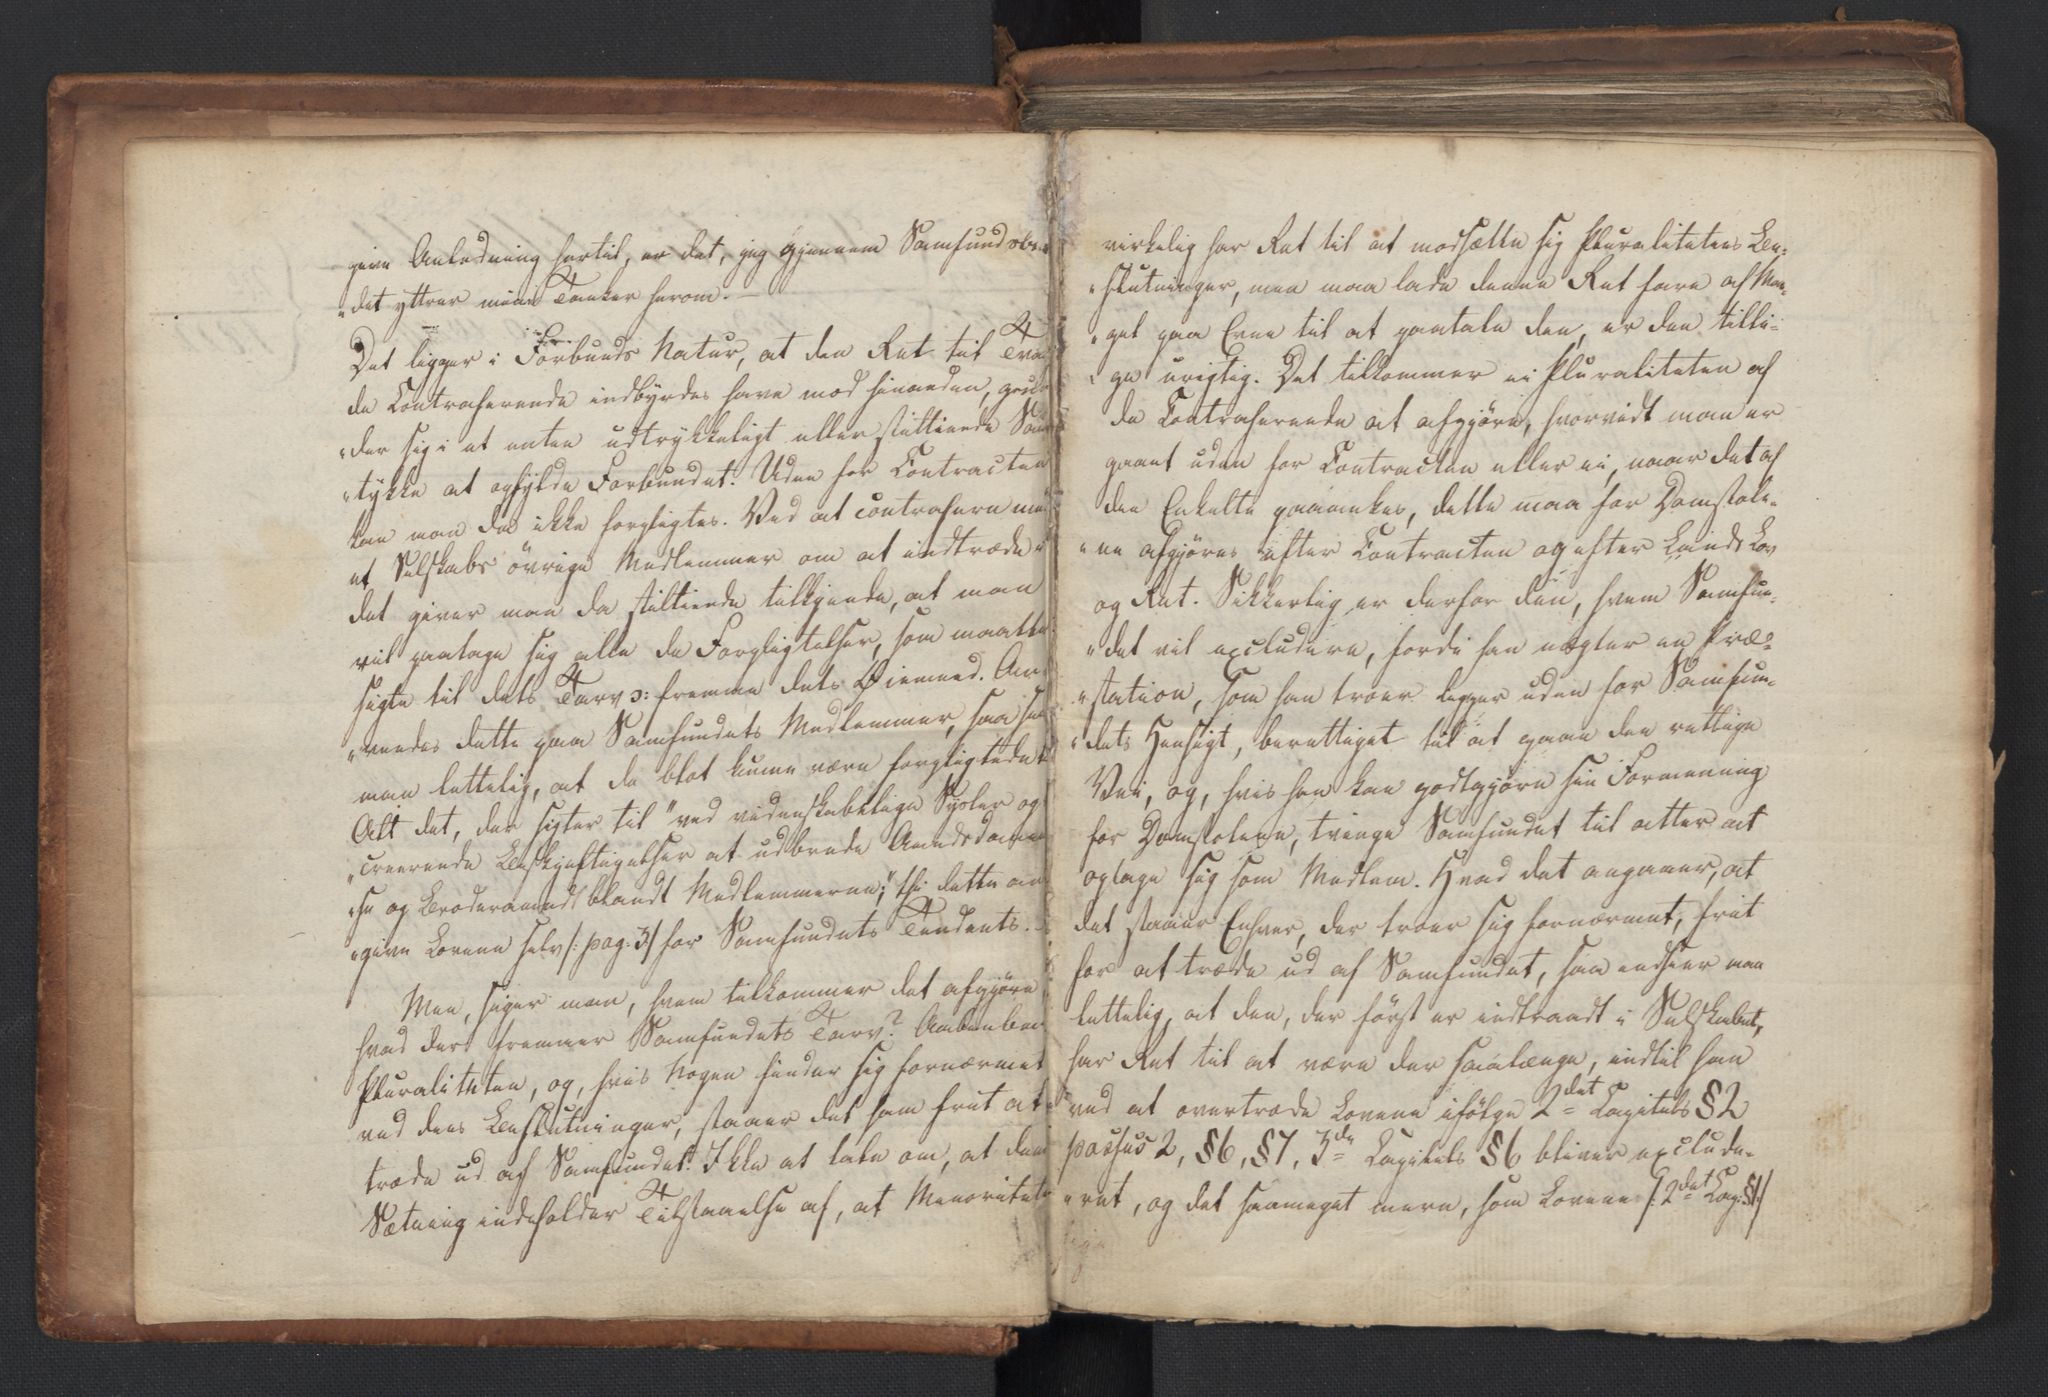 give Anledning hertil, er det, jeg gjennem Samfundsbla-
„det yttrer mine Tanker herom. —
Det ligger i Forbunds Natur, at den Ret til Tvang
de Contraherende indbyrdes have mod hinanden, grun-
„der sig i et enten udtrykkeligt eller stiltiende Sam-
„tykke at opfylde Forbundet. Uden for Contracten
kan man da ikke forpligtes. Ved at contrahere med
et Selskabs övrige Medlemmer om at indtræde i
det giver man da stiltiende tilkjende, at man
vil paatage sig alle de Forpligtelser, som maatte
sigte til dets Tarv ɔ: fremme dets Øiemed. An-
„vendes dette paa Samfundets Medlemmer, saa seer
man lettelig, at de blot kunne være forpligtede til
Alt det, der sigter til "ved videnskabelige Sysler og
„creerende Beskjeftigelser at udbrede Aandsdannel-
„se og Broderaand blandt Medlemmerne;" thi dette an-
„give Lovene selv /: pag: 3/ for Samfundets Tendents.
Men, siger man, hvem tilkommer det afgjöre,
hvad der fremmer Samfundets Tarv? Aabenbar
Pluraliteten, og, hvis Nogen finder sig fornærmet
ved dens Beslutninger, staaer det ham frit at
træde ud af Samfundet. Ikke at tale om, at denne
Sætning indeholder Tilstaaelse af, at Menoriteten
virkelig har Ret til at modsætte sig Pluralitetens Be-
„slutninger, men maa lade denne Ret fare af Man-
„gel paa Evne til at paatale den, er den tilli-
„ge urigtig. Det tilkommer ei Pluraliteten af
de Contraherende at afgjöre, hvorvidt man er
gaaet uden for Contracten eller ei, naar det af
den Enkelte paaankes, dette maa for Domstole-
„ne afgjöres efter Contracten og efter Lands Lov
og Ret. Sikkerlig er derfor den, hvem Samfun-
„det vil excludere, fordi han nægter en Præ-
„station, som han troer ligger uden for Samfun-
„dets Hensigt, berettiget til at gaae den rettlige
Vei, og, hvis han kan godtgjöre sin Formening
for Domstolene, tvinge Samfundet til atter at
optage sig som Medlem. Hvad det angaaer, at
det staaer Enhver, der troer sig fornærmet, frit
for at træde ud af Samfundet, saa indseer man
lettelig, at den, der först er indtraadt i Selskabet,
har Ret til at være der saalænge, indtil han
ved at overtræde Lovene ifölge 2det Capitels § 2
passus 2, § 6, § 7, 3de Capitels § 6 bliver exclude-
„ret, og det saameget mere, som Lovene /: 2det Cap: § 1/